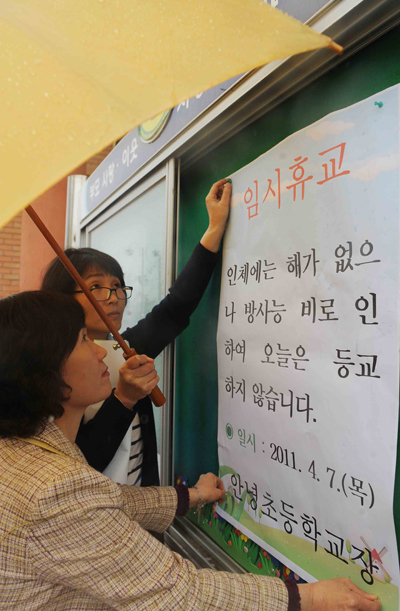 부모 사랑·이웃
임시휴교
인체에는 해가 없으
나 방사능 비로 인
하여 오늘은 등교
하지 않습니다.
일시 : 2011. 4. 7.(목)
안녕초등학교장